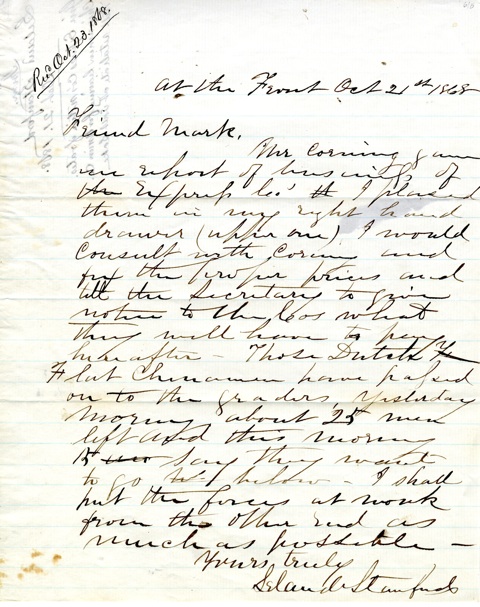 Rec Oct. 23. 1868.
At the Front Oct 21st 1868
Friend Mark,
Mr Corning gave
me report of business of
the Express Cos' I placed
them in my right hand
drawer (upper one) I would
consult with and
fix the proper prices and
tell the Secretary to give
notice to the Cos what
they will have to pay
hereafter – Those Dutch
Flat Chinamen have passed
on to the graders, yesterday
morning about 25 men
left and this morning
15 say they want
to go below – I shall
put the forces at work
from the other end as
much as possible –
Yours truly
Leland Stanford